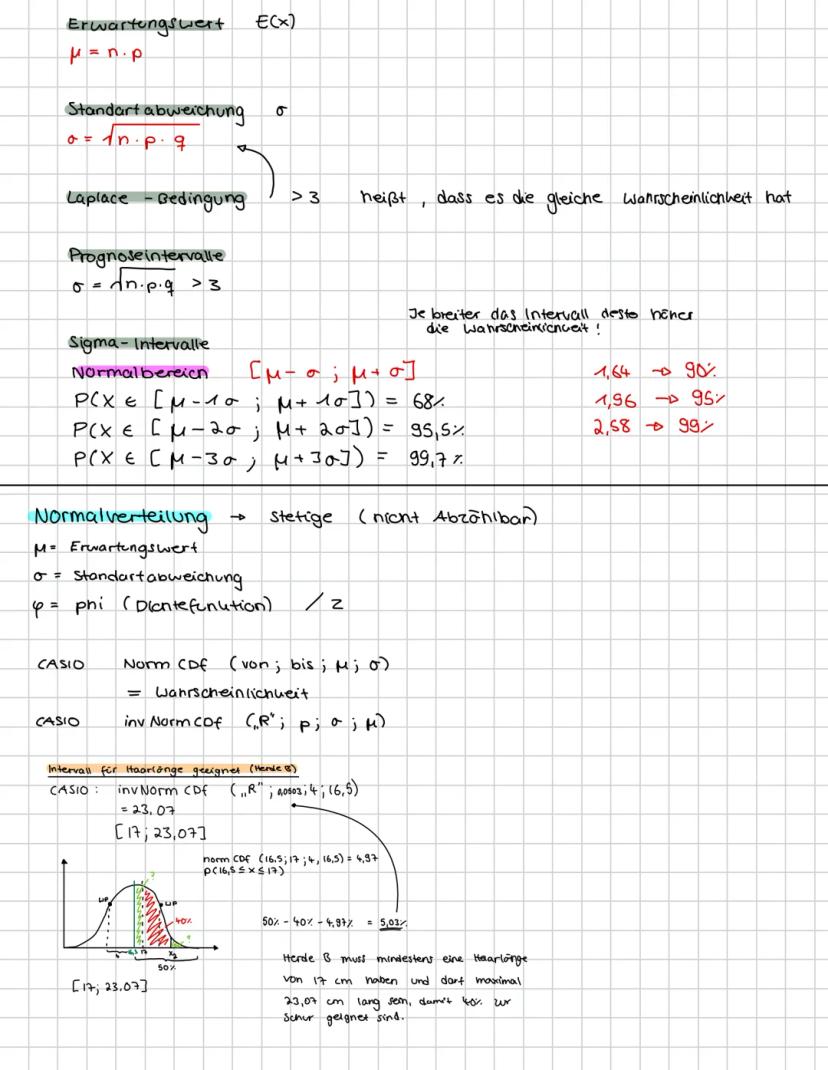 Erwartungswert E(x)
μ = n·p
Standartabweichung σ
σ = √n·p·q
Laplace - Bedingung > 3 heißt, dass es die gleiche Wahrscheinlichkeit hat
Prognoseintervalle
σ = √n·p·q > 3
Je breiter das Intervall desto höher
die Wahrscheinlichkeit!
Sigma-Intervalle
Normalbereich [μ-σ ; μ+σ] 1,64 → 90%
P(X ∈ [μ-1σ ; μ+1σ]) = 68% 1,96 → 95%
P(X ∈ [μ-2σ ; μ+2σ]) = 95,5% 2,58 → 99%
P(X ∈ [μ-3σ ; μ+3σ]) = 99,7%
Normalverteilung → stetige (nicht Abzählbar)
μ = Erwartungswert
σ = Standartabweichung
φ = phi (Dichtefunktion) / z
CASIO Norm CDf (von ; bis ; μ ; σ)
= Wahrscheinlichkeit
CASIO inv Norm CDf („R“ ; p ; σ ; μ)
Intervall für Haarlänge geeignet (Herde B)
CASIO : invNorm CDf („R“ ; 0,0503 ; 4 ; 16,5)
= 23,07
[17 ; 23,07]
norm CDf (16,5 ; 17 ; 4, 16,5) = 4,97
P(16,5 ≤ x ≤ 17)
?
WP WP
40%
?
50% - 40% - 4,97% = 5,03%
4 16,5 17 x₂
50%
[17; 23.07]
Herde B muss mindestens eine Haarlänge
von 17 cm haben und darf maximal
23,07 cm lang sein, damit 40% zur
Schur geignet sind.